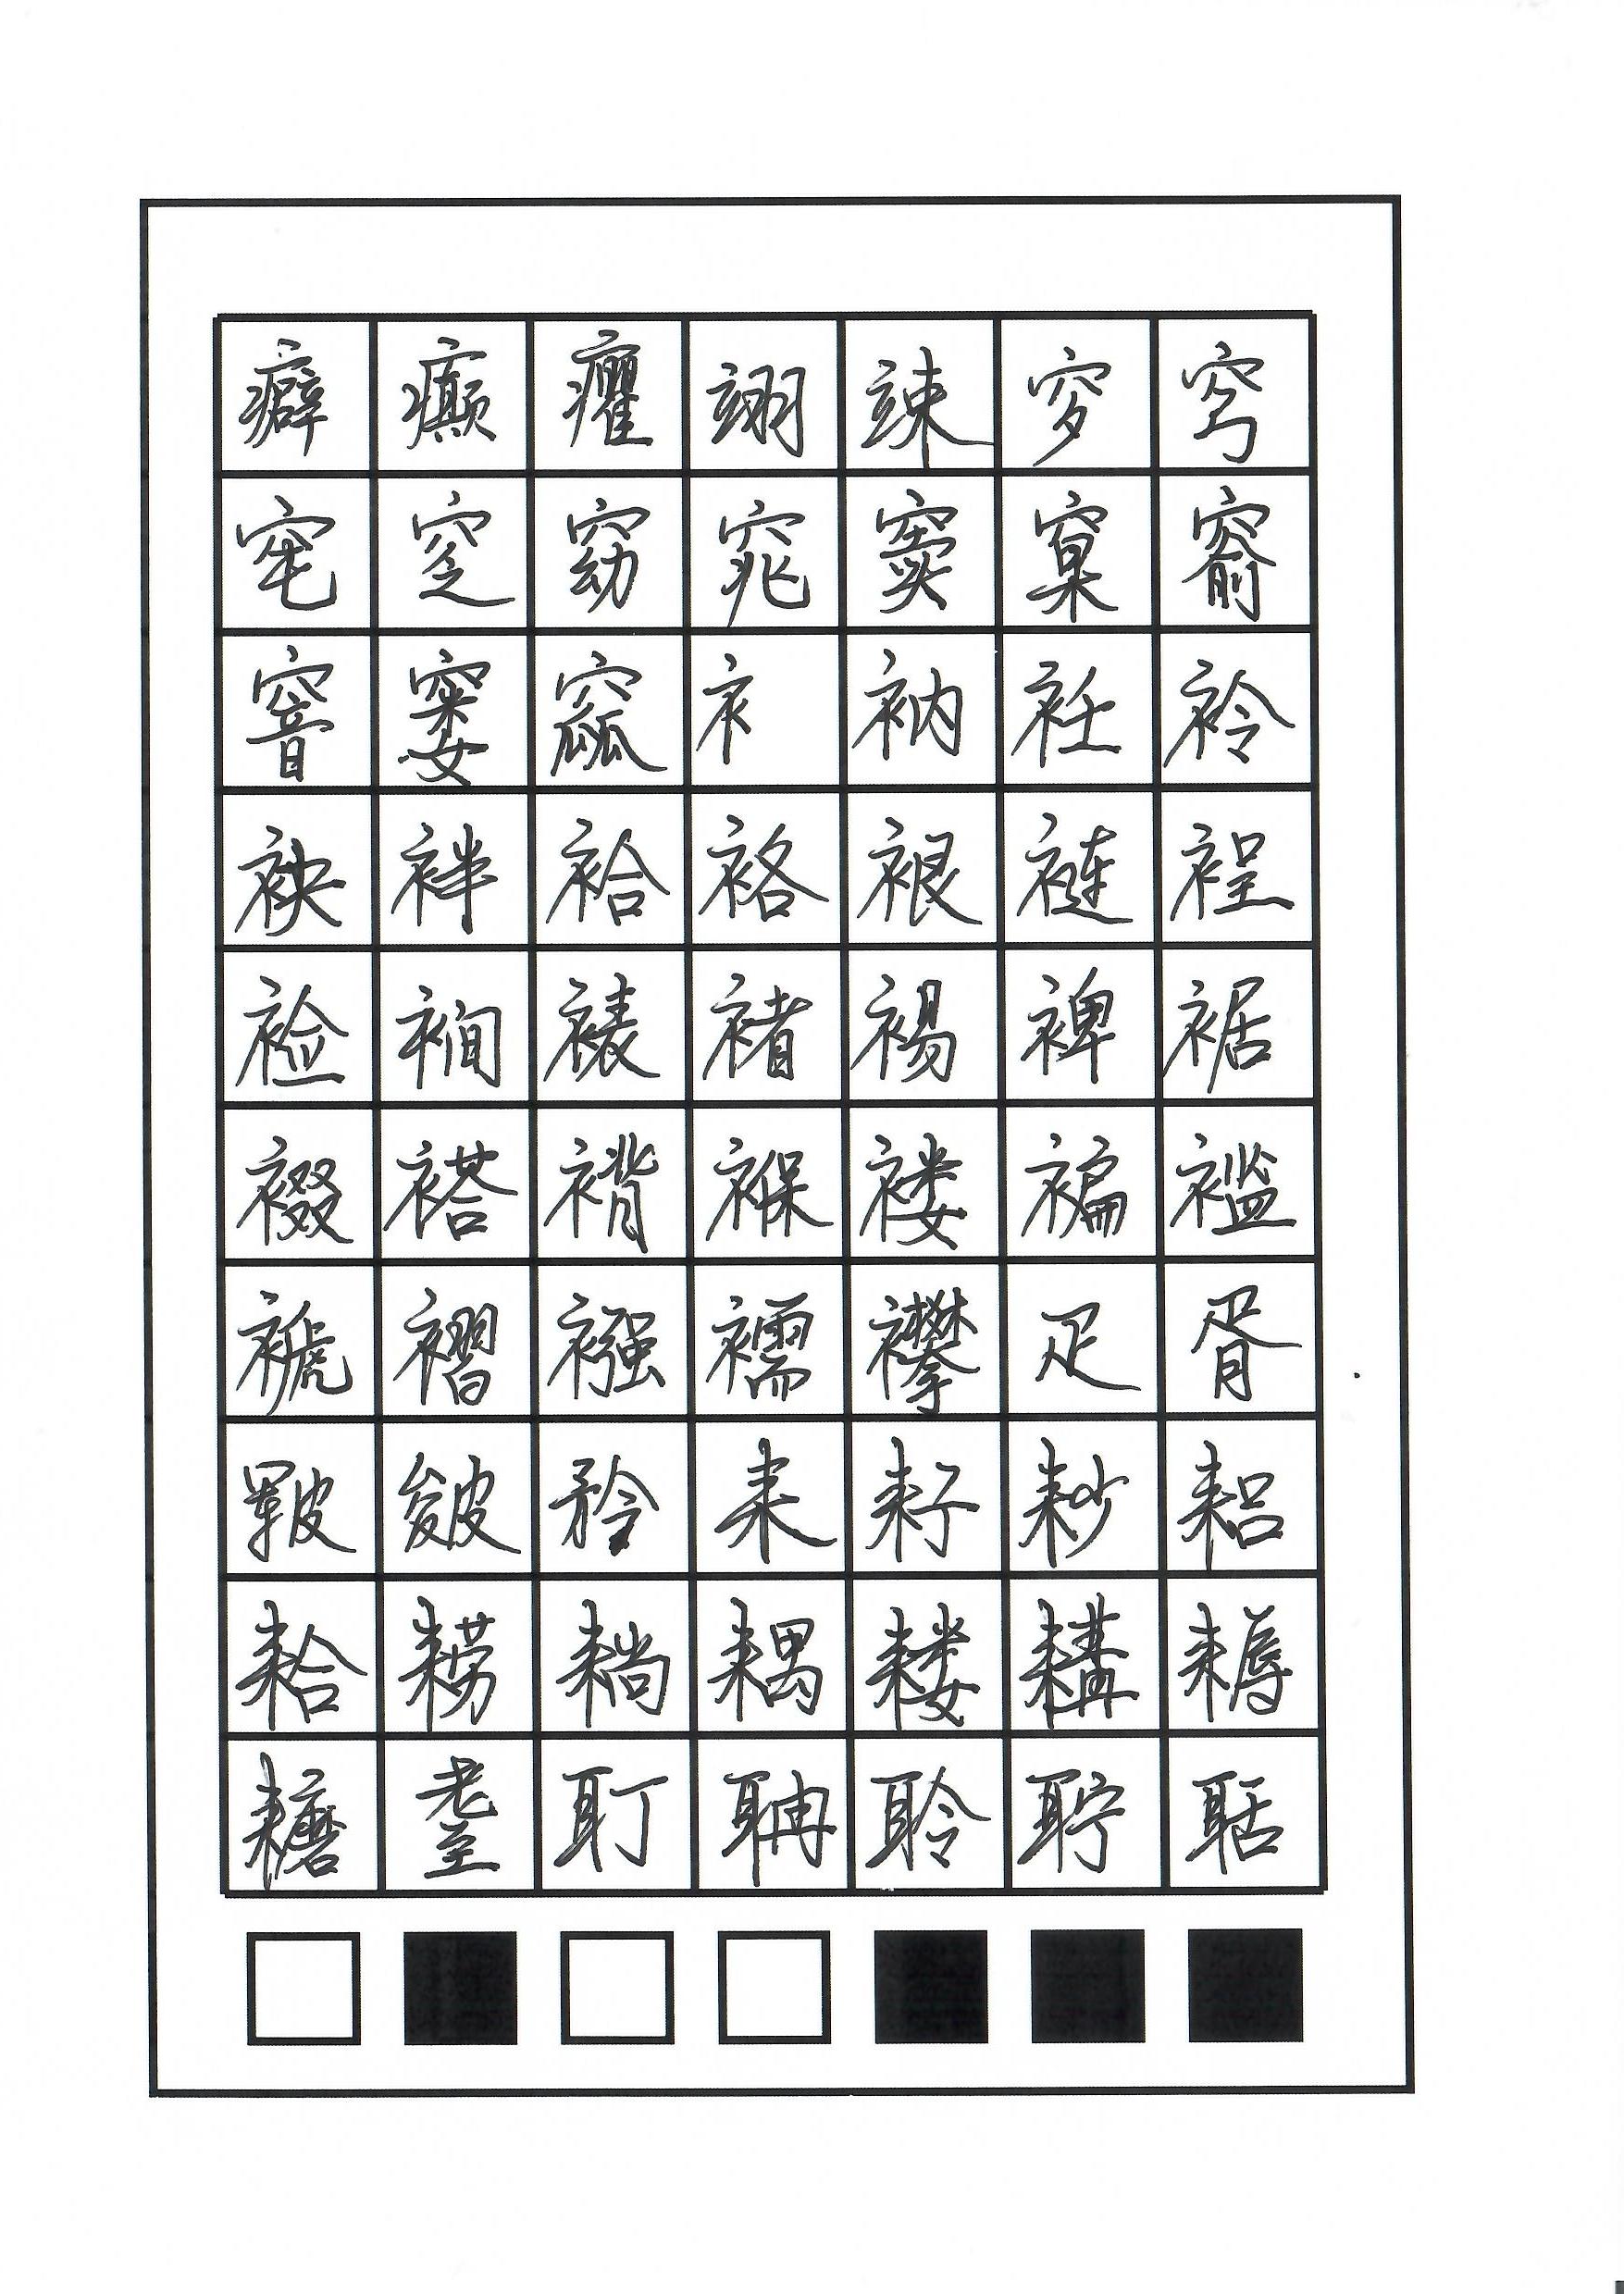 癖癫癯翊竦穸穹
窀窆窈窕窦窠窬
窨窭窳衤衲衽衿
袂袢袷袼裉裢裎
裣裥裱褚裼裨裾
裰褡褙褓褛褊褴
褫褶襁襦襻疋胥
皲皴矜耒耔耖耜
耠耢耥耦耧耩耨
耱耋耵聃聆聍聒